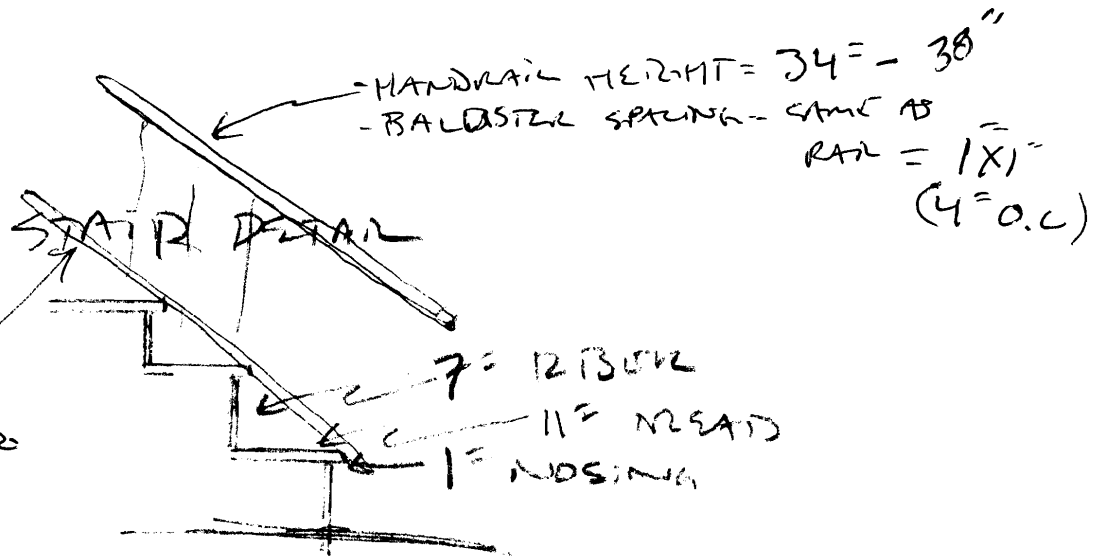 -HANDRAIL HEIGHT = 34" - 38"
-BALUSTER SPACING - SAME AS
RAIL = 1"X1"
(4" O.C)
STAIR DETAIL
7" RISER
11" TREAD
1" NOSING